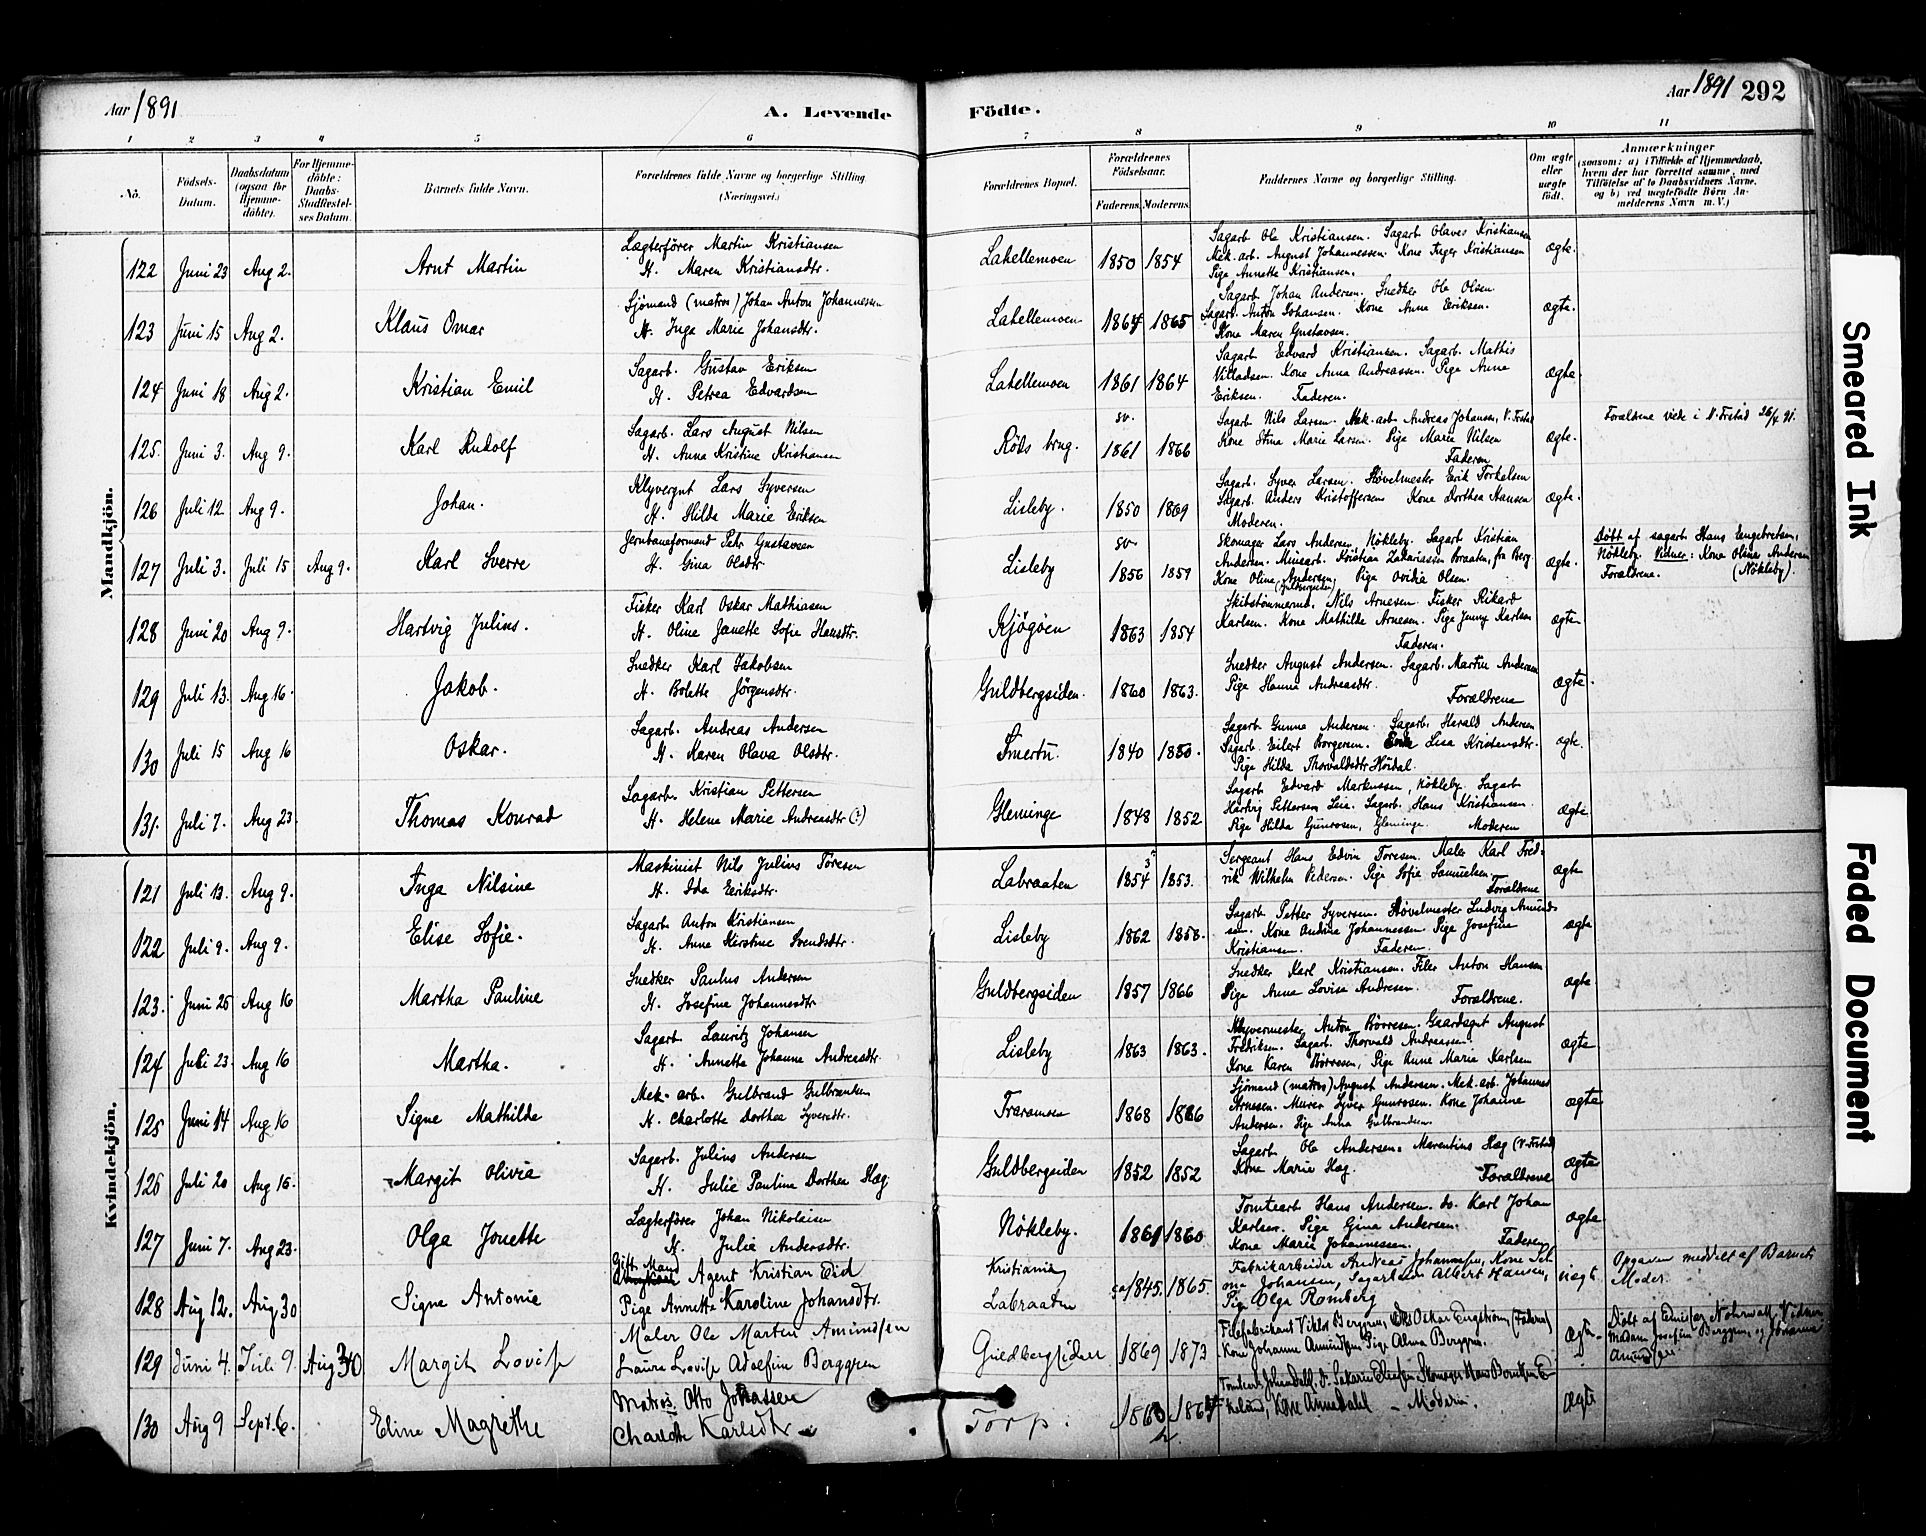 Aar 1891
A. Levende
Födte.
Aar 1891 292
1 2 3 4 5 6 7 8 9 10 11
No.
Födsels-Datum.
Daabsdatum (ogsaa for Hjemme-döbte).
For Hjemme-döbte: Daabs-Stadfæstel-ses Datum.
Barnets fulde Navn.
Forældrenes fulde Navne og borgerlige Stilling (Næringsvei.)
Forældrenes Bopæl.
Forældrenes Födselsaar.
Faderens. Moderens.
Faddernes Navne og borgerlige Stilling.
Om ægte eller uægte födt.
Anmærkninger
(saasom: a) i Tilfælde af Hjemmedaab, hvem der har forrettet samme, med Tilföielse af to Daabsvidners Navne, og b) ved uægtefödte Börn Anmelderens Navn m. V.)
Mandkjön.
122 Juni 23 Aug 2. Arnt Martin
Lægterförer Martin Kristiansen
H. Maren Kristiansdtr.
Lahellemoen 1850 1854
Sagarb Ole Kristiansen. Sagarb Olaves Kristiansen
Mek. arb. August Johannessen. Kone Inger Kristiansen
Pige Annette Kristiansen.
ægte.
123 Juni 15 Aug 2. Klaus Omar
Sjömand (matros) Johan Anton Johannesen
H. Inga Marie Johansdtr.
Lahellemoen 1864 1865
Sagarb. Johan Andersen. Snedker Ole Olsen
Sagarb. Anton Johansen. Kone Anna Eriksen.
Kone Maren Gustavsen.
ægte.
124 Juni 18 Aug 2. Kristian Emil
Sagarb. Gustav Eriksen
H. Petrea Edvardsen
Lahellemoen 1861 1864
Sagarb Edvard Kristiansen. Sagarb. Mathis
Villadsen. Kone Anna Andreassen. Pige Anna
Eriksen. Faderen.
ægte.
125. Juni 3. Aug 9. Karl Rudolf
Sagarb. Lars August Nilsen
H. Anna Kristine Kristiansen
Röds brug. sv. 1861 1866
Sagarb Nils Larsen. Mek. arb. Andreas Johansen, V. Frstad
Kone Stina Marie Larsen. Pige Marie Nilsen
Faderen
ægte.
Forældrene viede i V. Frstad 26/4 91.
126 Juli 12 Aug 9. Johan.
Klyvergut Lars Syversen
H. Hilda Marie Eriksen
Lisleby. 1850 1869
Sagarb. Syver Larsen. Hövelmester Erik Torkelsen
Sagarb. Anders Kristoffersen Kone Dorthea Hansen
Moderen.
ægte.
127 Juli 3. Juli 15 Aug 9. Karl Sverre
Jernbaneformand Petr Gustavsen
H. Gina Olsdtr
Lisleby sv. 1856 1859
Skomager Lars Andersen Nökleby. Sagarb Kristian
Andersen. Minearb. Kristian Zakariassen Braaten, fra Berg
Kone Olina Andersen, Pige Ovidia Olsen.
ægte.
Döbt af sagarb Hans Engebretsen,
Nökleby. Vidner: Kone Olina Andersen
Forældrene. (Nökleby).
128 Juni 20 Aug 9. Hartvig Julius.
Fisker Karl Oskar Mathiasen
H. Oline Janette Sofie Hansdtr.
Kjögöen 1863 1854
Skibstömmermd. Nils Arnesen. Fisker Rikard
Karlsen. Kone Mathilde Arnesen. Pige Jenny Karlsen
Faderen.
ægte
129 Juli 13. Aug 16. Jakob.
Snedker Karl Jakobsen
H. Bolette Jörgensdtr.
Guldbergsiden. 1860 1863.
Snedker August Andersen. Sagarb. Martin Andersen
Pige Hanna Andreasdtr.
Forældrene
ægte.
130 Juli 15 Aug 16 Oskar.
Sagarb. Andreas Andersen
H. Karen Olava Olsdtr.
Smertu. 1840 1850.
Sagarb. Gunna Andersen. Sagarb. Harald Andersen
Sagarb. Eilert Borgersen. Lisa Kristensdtr.
Pige Hilda Thorvaldsdtr Höidal.
ægte.
131. Juli 7. Aug 23. Thomas Konrad
Sagarb. Kristian Pettersen
H. Helene Marie Andreasdtr (?)
Glemminge 1848 1852
Sagarb Edvard Markussen, Nökleby. Sagarb
Hartvig Pettersen Leie. Sagarb. Hans Kristiansen.
Pige Hilda Gunrosen, Glemminge. Moderen
ægte
Kvindekjön.
121 Juli 13. Aug 9. Inga Nilsine
Maskinist Nils Julius Toresen
H. Ida Eriksdtr.
Labraaten 1854 3? 1853.
Sergeant Hans Edvin Toresen. Maler Karl Fred-
rik Wilhelm Pedersen. Pige Sofie Samuelsen.
Forældrene
ægte
122 Juli 9. Aug 9. Elise Sofie.
Sagarb Anton Kristiansen
H. Anne Kirstine Svendsdtr.
Lisleby 1862 1858.
Sagarb Petter Syversen. Hövelmester Ludvig Amund-
sen. Kone Andrine Johannessen Pige Josefine
Kristiansen. Faderen.
ægte
123. Juni 25 Aug 16 Martha Pauline
Snedker Paulus Andersen
H. Josefine Johannesdtr
Guldbergsiden 1857 1866
Snedker Karl Kristiansen. Filer Anton Hansen
Pige Anna Lovise Andresen. Forældrene.
ægte
124 Juli 23. Aug 16 Martha.
Sagarb Lauritz Johansen
H. Annette Johanne Andreasdtr.
Lisleby 1863 1863.
Klyvermester Anton Börresen. Gaardsgut August
Fredriksen. Sagarb. Thorvald Andreassen
Kone Karen Börresen, Pige Anne Marie Karlsen
ægte
125 Juni 14 Aug 16 Signe Mathilde
Mek. arb. Gulbrand Gulbransen
H. Charlotte Dorthea Syversdtr.
Traramsen 1868 1866
Sjömand (matros) August Andersen. Mek. arb. Johannes
Arnesen. Murer Syver Gunrosen. Kone Johanne
Andersen. Pige Anna Gulbrandsen.
ægte
126 Juli 20 Aug 16. Margit Olivia
Sagarb. Julius Andersen
H. Julie Pauline Dorthea Hag
Guldbergsiden 1852 1852
Sagarb Ole Andersen. Marentius Hag (V-Frstad)
Kone Marie Hag. Forældrene
ægte
127 Juni 7. Aug 23. Olga Jonette
Lægterförer Johan Nikolaisen
H. Julie Andersdtr.
Nökleby. 1861 1860
Tomtearb Hans Andersen. do. Karl Johan
Karlsen. Pige Gina Andersen.
Kone Marie Johannessen. Faderen
ægte
128 Aug 12. Aug 30 Signe Antonie
Gift Mand Agent Kristian Eid
Pige Annette Karoline Johansdtr.
Kristiania
Labraaten ca 1845. 1865.
Fabrikarbeider Andreas Johannesen, Kone
Johansen, Sagarbeider Albert Hansen,
Pige Olga Romberg
uægt.
Opgaven meddelt af Barnets
Moder.
129 Juni 4. Juli 9. Aug 30. Margit Lovise
Maler Ole Martin Amundsen
Laura Lovise Adolfine Berggren
Guldbergsiden 1869 1873
Filefabrikant Viktor Berggren, Oskar Engström, (Faderen)
Kone Johanne Amundsen Pige Alma Berggren.
Ægte.
Döbt af Emissær Nohrwall, Vidner
Madam Josefine Berggren, og Johanna
Amundsen
130 Aug 9 Sept. 6. Eline Magrethe
Matros. Otto Johassen
Charlotte Karlsdtr
Torp. 1863 1864
Kone Anne Dahl – Moderen.
Ægte
Smeared Ink
Faded Document